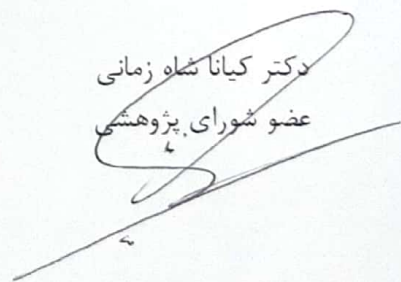 دکتر کیانا شاه زمانی
عضو شورای پژوهشی